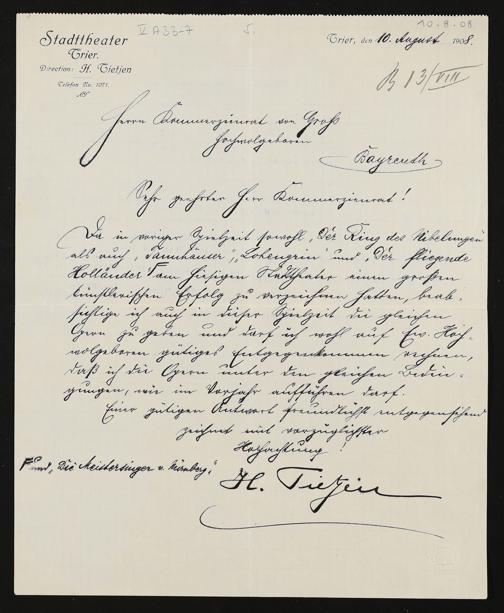 V A 33-7
5.
10.8.08
Stadttheater
Trier.
Direction: H. Tietjen
Telefon No. 1071.
Trier, den 10. August 1908.
B 13/VIII
Herrn Kommerzienrat von Groß
Hochwolgeboren
Bayreuth
Sehr geehrter Herr Kommerzienrat!
Da in voriger Spielzeit sowohl „Der Ring des Nibelungen“
als auch „Tannhäuser“, „Lohengrin“ und „Der fliegende
Holländer“ am hiesigen Stadttheater einen großen
künstlerischen Erfolg zu verzeichnen hatten, beab-
sichtige ich auch in dieser Spielzeit die gleichen
Opern zu geben und darf ich wohl auf Ew. Hoch-
wolgeboren gütiges Entgegenkommen rechnen,
daß ich die Opern unter den gleichen Bedin-
gungen, wie im Vorjahr aufführen darf.
Einer gütigen Antwort freundlichst entgegensehend
zeichnet mit vorzüglichster
Hochachtung!
und „Die Meistersinger v. Nürnberg“,
H. Tietjen